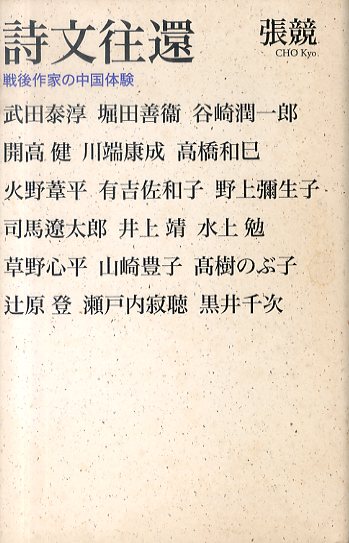 詩文往還
張競
CHO Kyo
戦後作家の中国体験
武田泰淳 堀田善衞 谷崎潤一郎
開高 健 川端康成 高橋和巳
火野葦平 有吉佐和子 野上彌生子
司馬遼太郎 井上 靖 水上 勉
草野心平 山崎豊子 髙樹のぶ子
辻原 登 瀬戸内寂聴 黒井千次